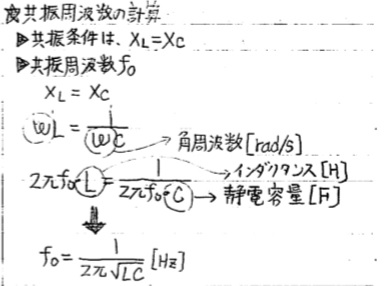 ☆共振周波数の計算
▷共振条件は、XL=XC
▷共振周波数f₀
XL = XC
ωL = 1/ωC
→ 角周波数[rad/s]
2πf₀·L = 1/2πf₀·C
→インダクタンス[H]
→静電容量[F]
⇓
f₀ = 1/2π√LC [Hz]